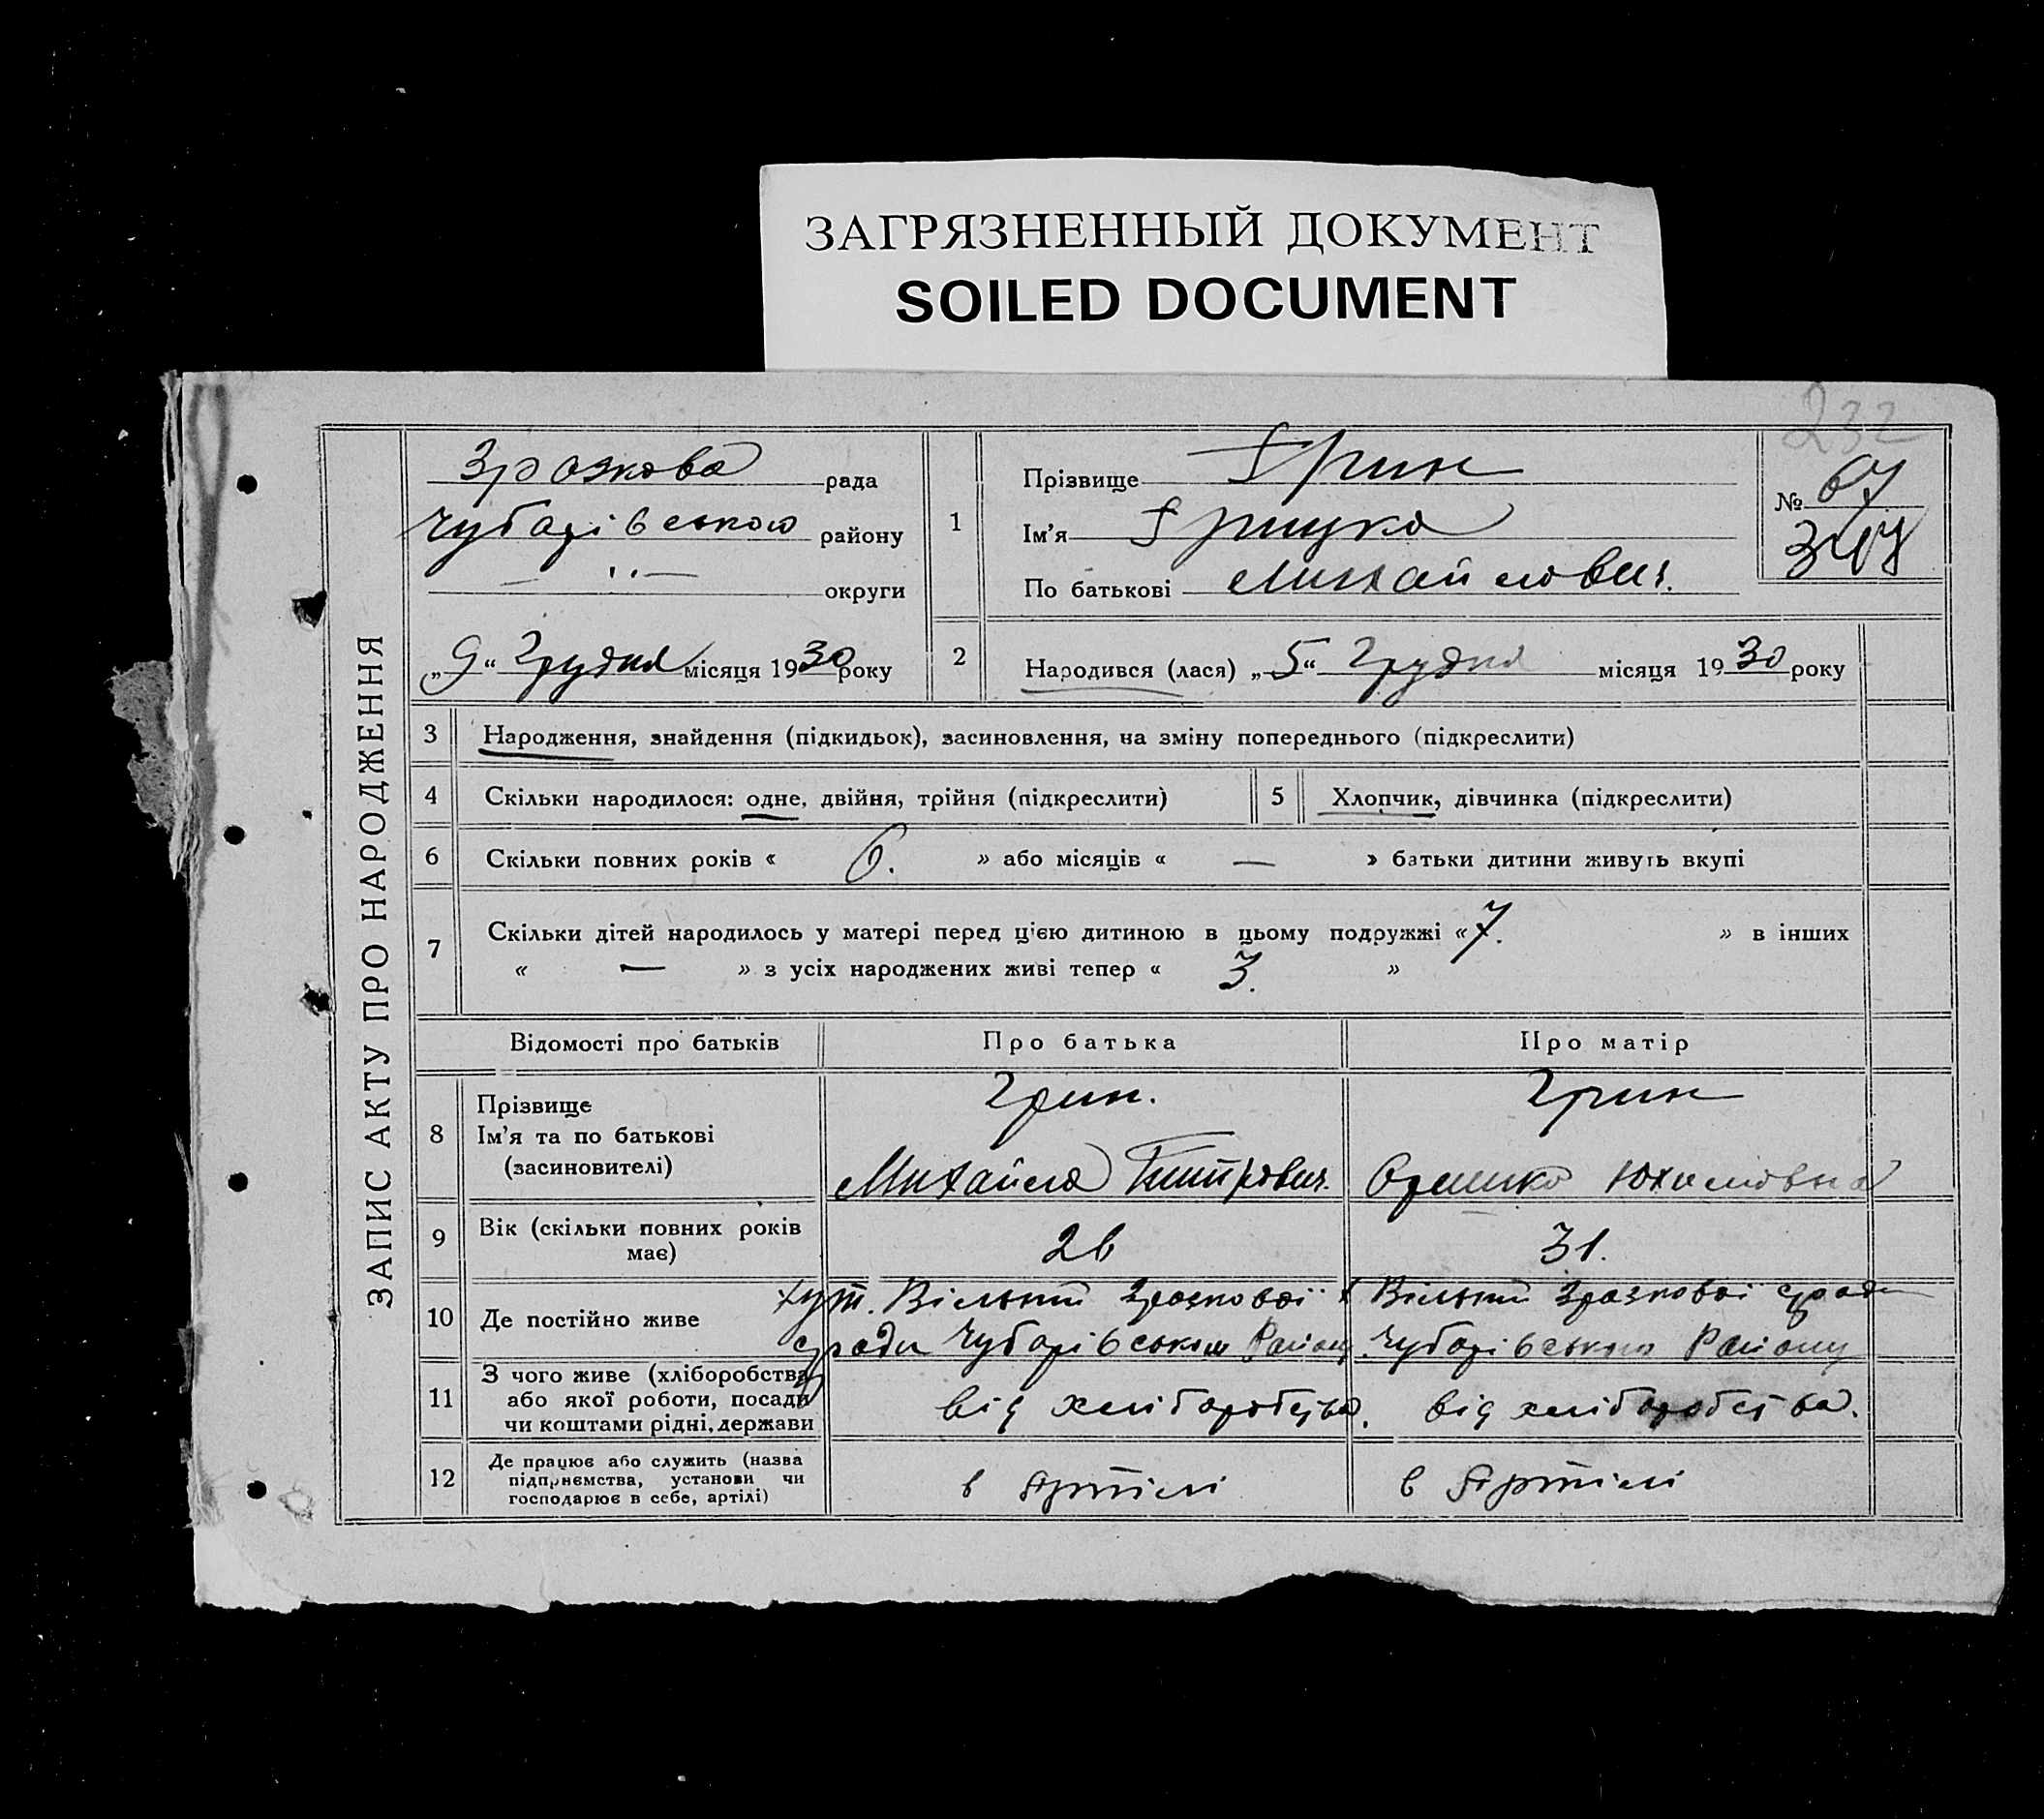 ЗАГРЯЗНЕННЫЙ ДОКУМЕНТ
SOILED DOCUMENT
232
ЗАПИС АКТУ ПРО НАРОДЖЕННЯ
Зразкова рада
Чубарівського району
— " — округи
„9“ Грудня місяця 1930 року
1
Прізвище Грин
Ім'я Грицко
По батькові Михайлович.
№ 67
347
2 Народився (лася) „5“ Грудня місяця 1930 року
3 Народження, знайдення (підкидьок), засиновлення, на зміну попереднього (підкреслити)
4 Скільки народилося: одне, двійня, трійня (підкреслити) 5 Хлопчик, дівчинка (підкреслити)
6 Скільки повних років « 6. » або місяців « — » батьки дитини живуть вкупі
7 Скільки дітей народилось у матері перед цією дитиною в цьому подружжі «7. » в інших
« — » з усіх народжених живі тепер « 3. »
Відомості про батьків Про батька Про матір
8 Прізвище Грин. Грин
Ім'я та по батькові
(засиновителі) Михайло Юхимовна
9 Вік (скільки повних років має) 26 31.
10 Де постійно живе хут. Вільний Зразкової х Вільний Зразкової сради
сради Чубарівського Району. Чубарівського Району
11 З чого живе (хліборобства
або якої роботи, посади від хліборобства. від хліборобства.
чи коштами рідні, держави
12 Де працює або служить (назва
підприємства, установи чи в Артілі в Артілі
господарює в себе, артілі)